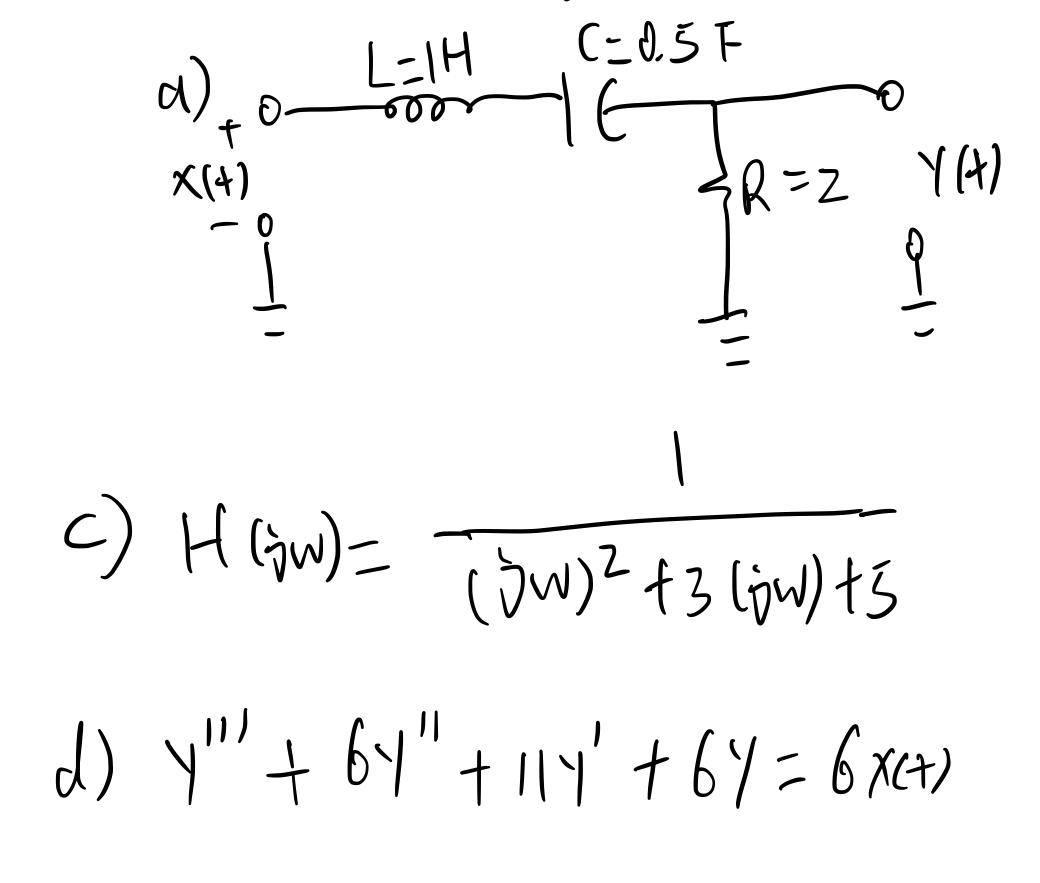 a) L=1H C=0.5 F
+
X(t)
-
R=2 Y(t)
c) H(jw)= 1/((jw)²+3(jw)+5)
d) Y'''+6Y''+11Y'+6Y=6x(t)